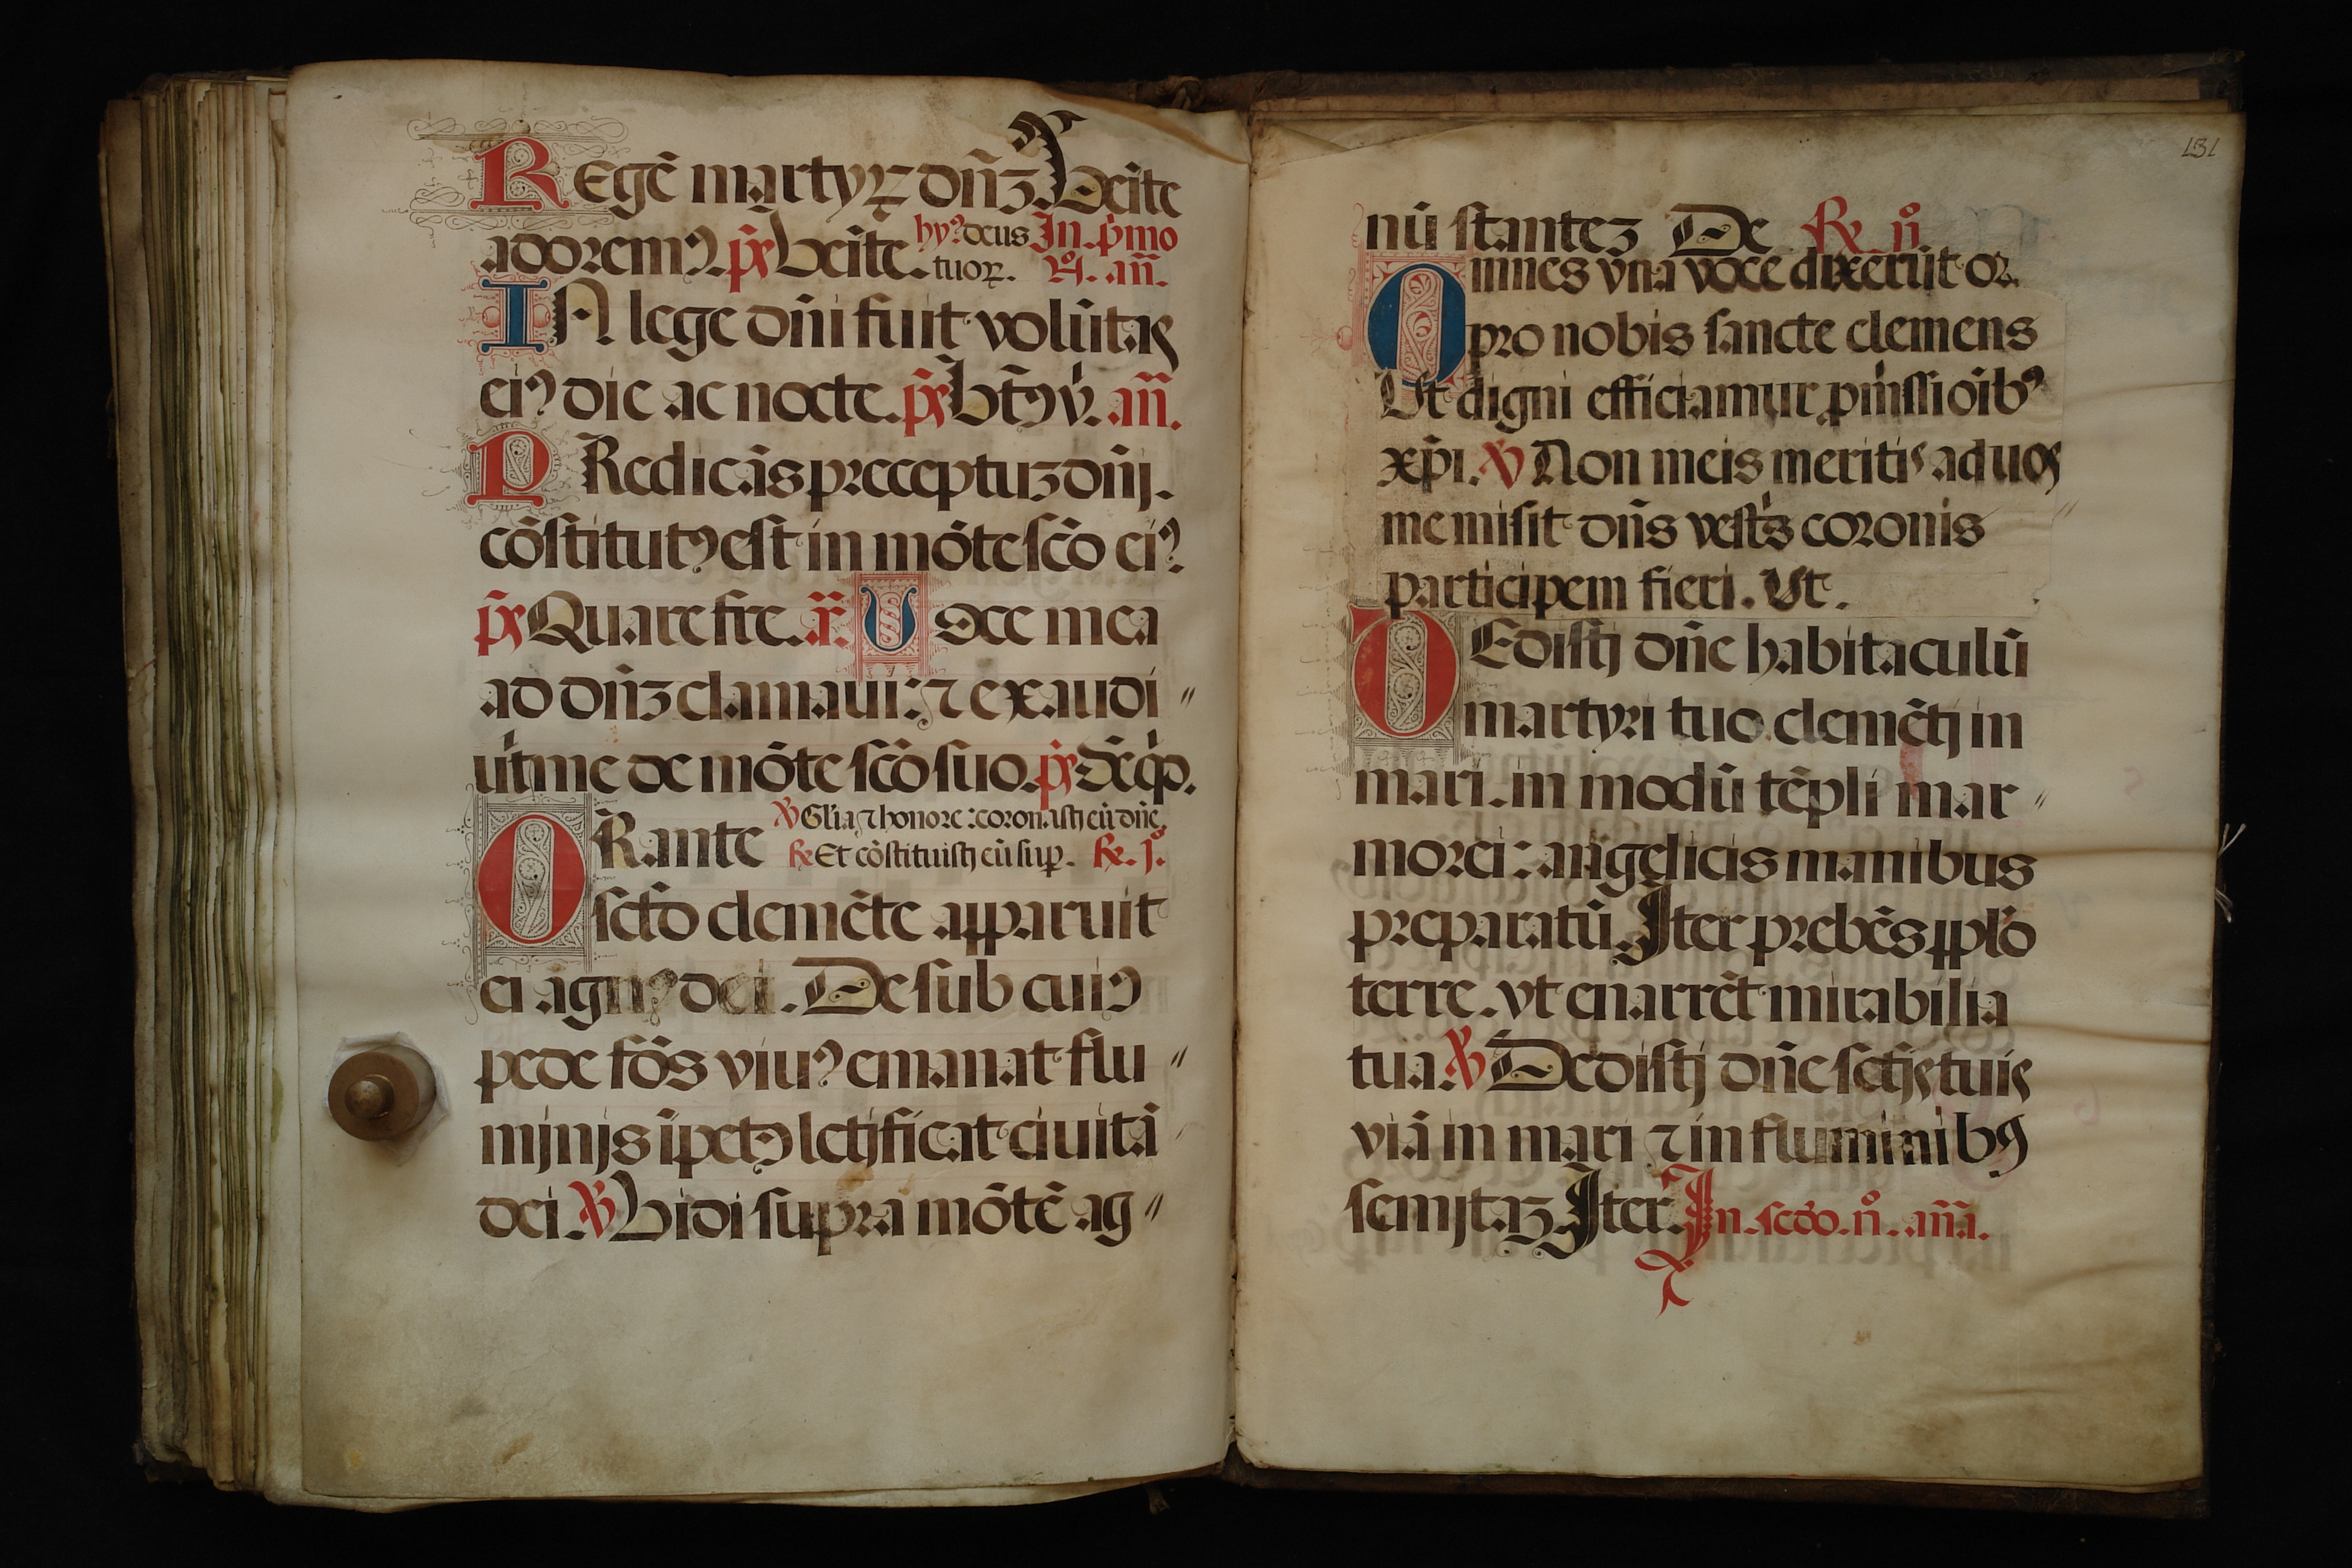 REgē martyꝝ dñꝫ Ueīte
adorem⁹. p̄s̄ Ueīte. hy⁹ deus In. p̍mo
tuoꝝ. n̊. añ.
IN lege dñi fuit volūtas
ei⁹ die ac nocte. p̄s̄ bt̄⁹ v̍. añ.
PRedicās preceptuꝫ dñj.
cōstitut⁹ est in mōte sc̄o ei⁹.
p̄s̄ Quare fre. a͞. Uoce mea
ad dñꝫ clamaui: ⁊ exaudi〃
uit me de mōte sc̄o suo. p̄s̄ Dn̄e q̍d.
ORante ℣ Gl̄ia ⁊ honore: coronastj eū dñe
℟ Et cōstituistj eū suꝑ. ℟. j.
scto clemēte apparuit
ei agn⁹ dei. De sub cui⁹
pede fōs viu⁹ emanat flu〃
mjnjs īpet⁹ letificat ciuitā
dei ℣ Uidi supra mōtē ag〃
131
nū stanteꝫ De ℟. ij.
Omnes vna voce dixerūt or.
pro nobis sancte clemens
Ut digni efficiamur pm̍issioīb⁹
xp̄i. ℣ Non meis meritis ad uos
me misit dñs vestr̍s coronis
participem fieri. Ut.
DEdistj dñe habitaculū
martyri tuo clemētj in
mari. in modū tēpli mar〃
morei: angelicis manibus
preparatū. Iter prebēs pplo
terre. vt enarrēt mirabilia
tua ℣ Dedistj dñe sctjs tuis
viā in mari ⁊ in fluminib⁹
semjtaꝫ Iter. In. scdo. n̊. aña.